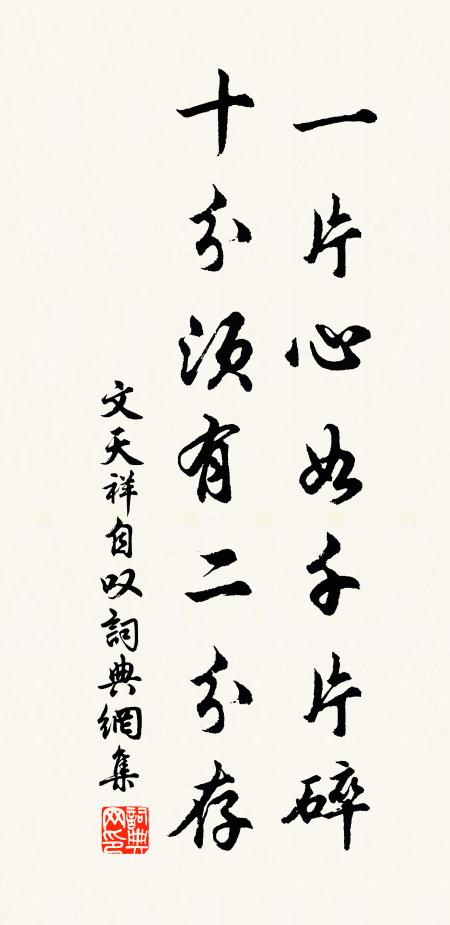 一片心如千片碎
十分须有二分存
文天祥自叹詞典網集
詞典網印